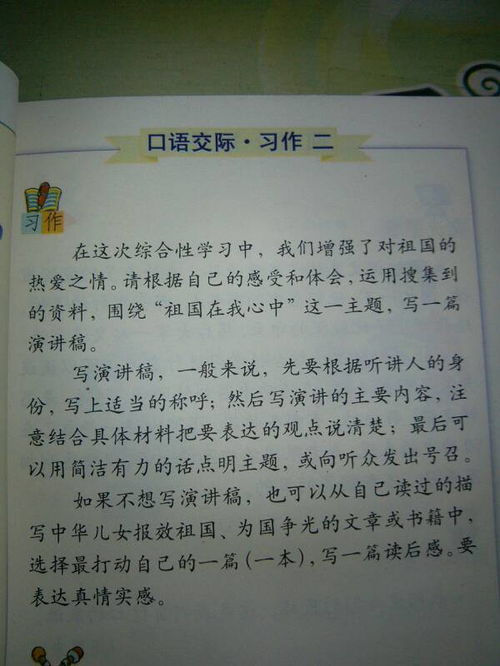 口语交际·习作 二
习作
在这次综合性学习中，我们增强了对祖国的
热爱之情。请根据自己的感受和体会，运用搜集到
的资料，围绕“祖国在我心中”这一主题，写一篇
演讲稿。
写演讲稿，一般来说，先要根据听讲人的身
份，写上适当的称呼；然后写演讲的主要内容，注
意结合具体材料把要表达的观点说清楚；最后可
以用简洁有力的话点明主题，或向听众发出号召。
如果不想写演讲稿，也可以从自己读过的描
写中华儿女报效祖国、为国争光的文章或书籍中，
选择最打动自己的一篇（一本），写一篇读后感。要
表达真情实感。